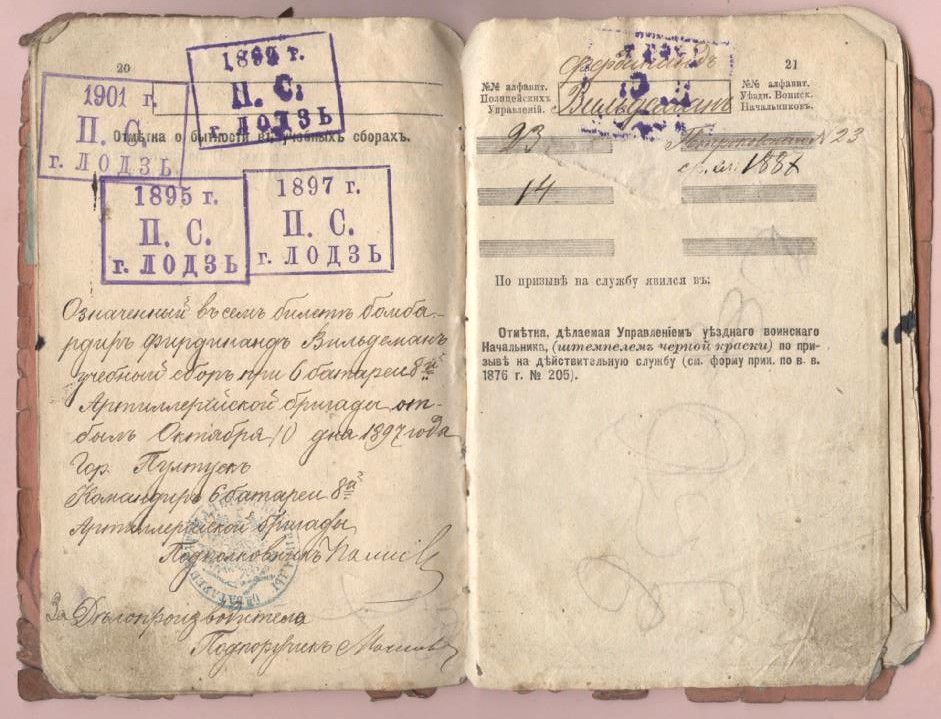 20
1899 г.
П. С.
г. ЛОДЗЬ
1901 г.
П. С.
г. ЛОДЗЬ
Отмѣтка о бытности въ учебныхъ сборахъ.
1895 г.
П. С.
г. ЛОДЗЬ
1897 г.
П. С.
г. ЛОДЗЬ
Означенный въ семъ билетѣ бомба-
рдиръ Фирдинандъ Вильдеманъ
учебный сборъ при 6 батареи 8ой
Артиллерійской бригады от-
былъ Октября 10 дня 1897 года
Гор. Пултускъ
Командиръ 6 батареи 8ой
Артиллерійской бригады
Подполковникъ
За Дѣлопроизводителя
Подпоручикъ
21
Фердинандъ
Вильдеманъ
№№ алфавит.
Полицейскихъ
Управленій.
№№ алфавит.
Уѣздн. Воинск.
Начальниковъ.
23
№ 23
14
По призывѣ на службу явился въ:
Отмѣтка, дѣлаемая Управленіемъ уѣзднаго воинскаго
Начальника, (штемпелемъ черной краски) по при-
зывѣ на дѣйствительную службу (см. форму прик. по в. в.
1876 г. № 205).